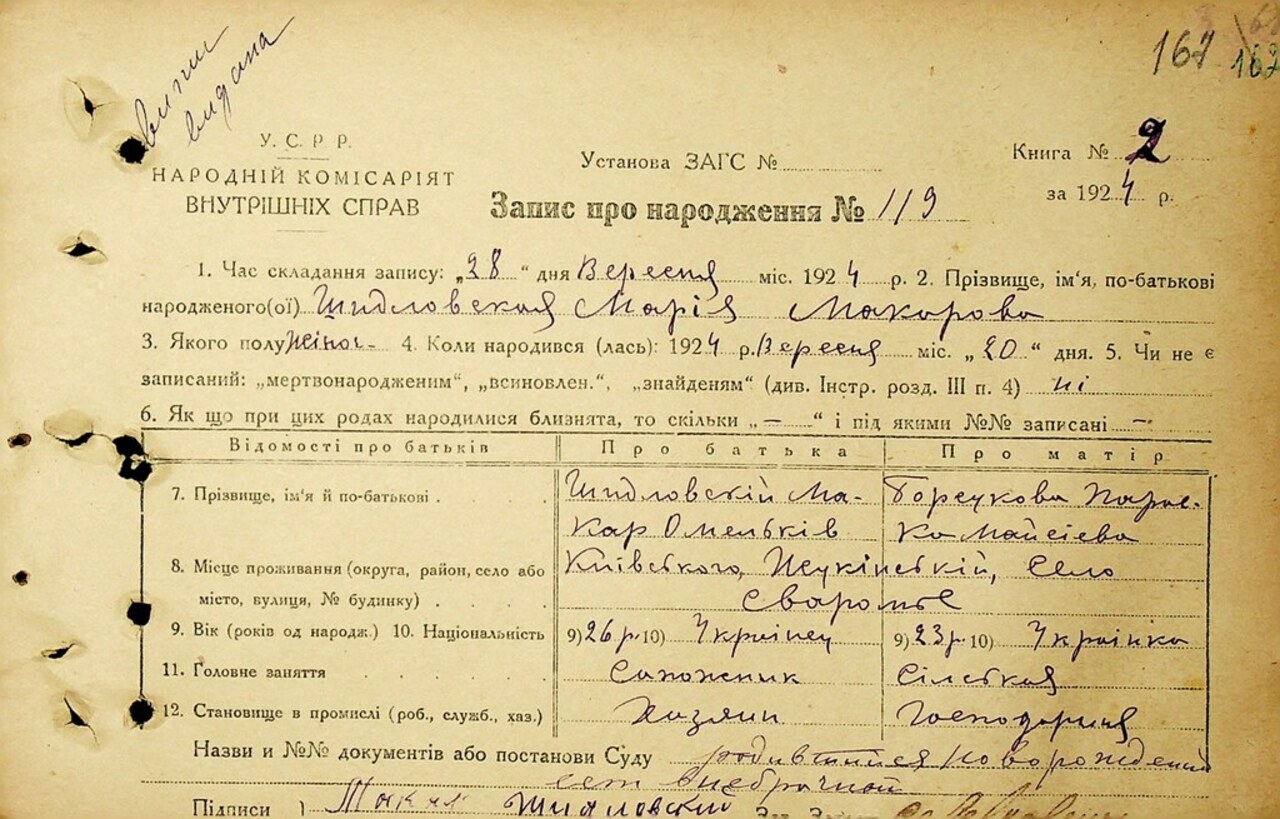 випис
видана
167
162
У. С. Р Р.
НАРОДНІЙ КОМІСАРІЯТ
ВНУТРІШНІХ СПРАВ
Установа ЗАГС №
Книга № 2
за 1924 р.
Запис про народження № 119
1. Час складання запису: „28“ дня Вересня міс. 1924 р. 2. Прізвище, ім‘я, по-батькові
народженого(ої) Шидловская Марія Макарова
3. Якого полу жіноч- 4. Коли народився (лась): 1924 р. Вересня міс. „20“ дня. 5. Чи не є
записаний: „мертвонародженим“, „всиновлен.“, „знайденям“ (див. Інстр. розд. III п. 4) ні
6. Як що при цих родах народилися близнята, то скільки „—“ і під якими №№ записані —
Відомості про батьків Про батька Про матір
7. Прізвище, ім‘я й по-батькові Шидловскій Ма- Борсукова Парас-
кар Омельків ка Мойсієва
8. Місце проживання (округа, район, село або Київського, село
місто, вулиця, № будинку) Сваромьє
9. Вік (років од народж.) 10. Національність 9) 26 р. 10) Українец 9) 23 р. 10) Українка
11. Головне заняття Сапожник Сільская
12. Становище в промислі (роб., служб., хаз.) Хазяин Господарня
Назви и №№ документів або постанови Суду родившийся новорожденый
ест внебрачной
Підписи Макар Шидловский